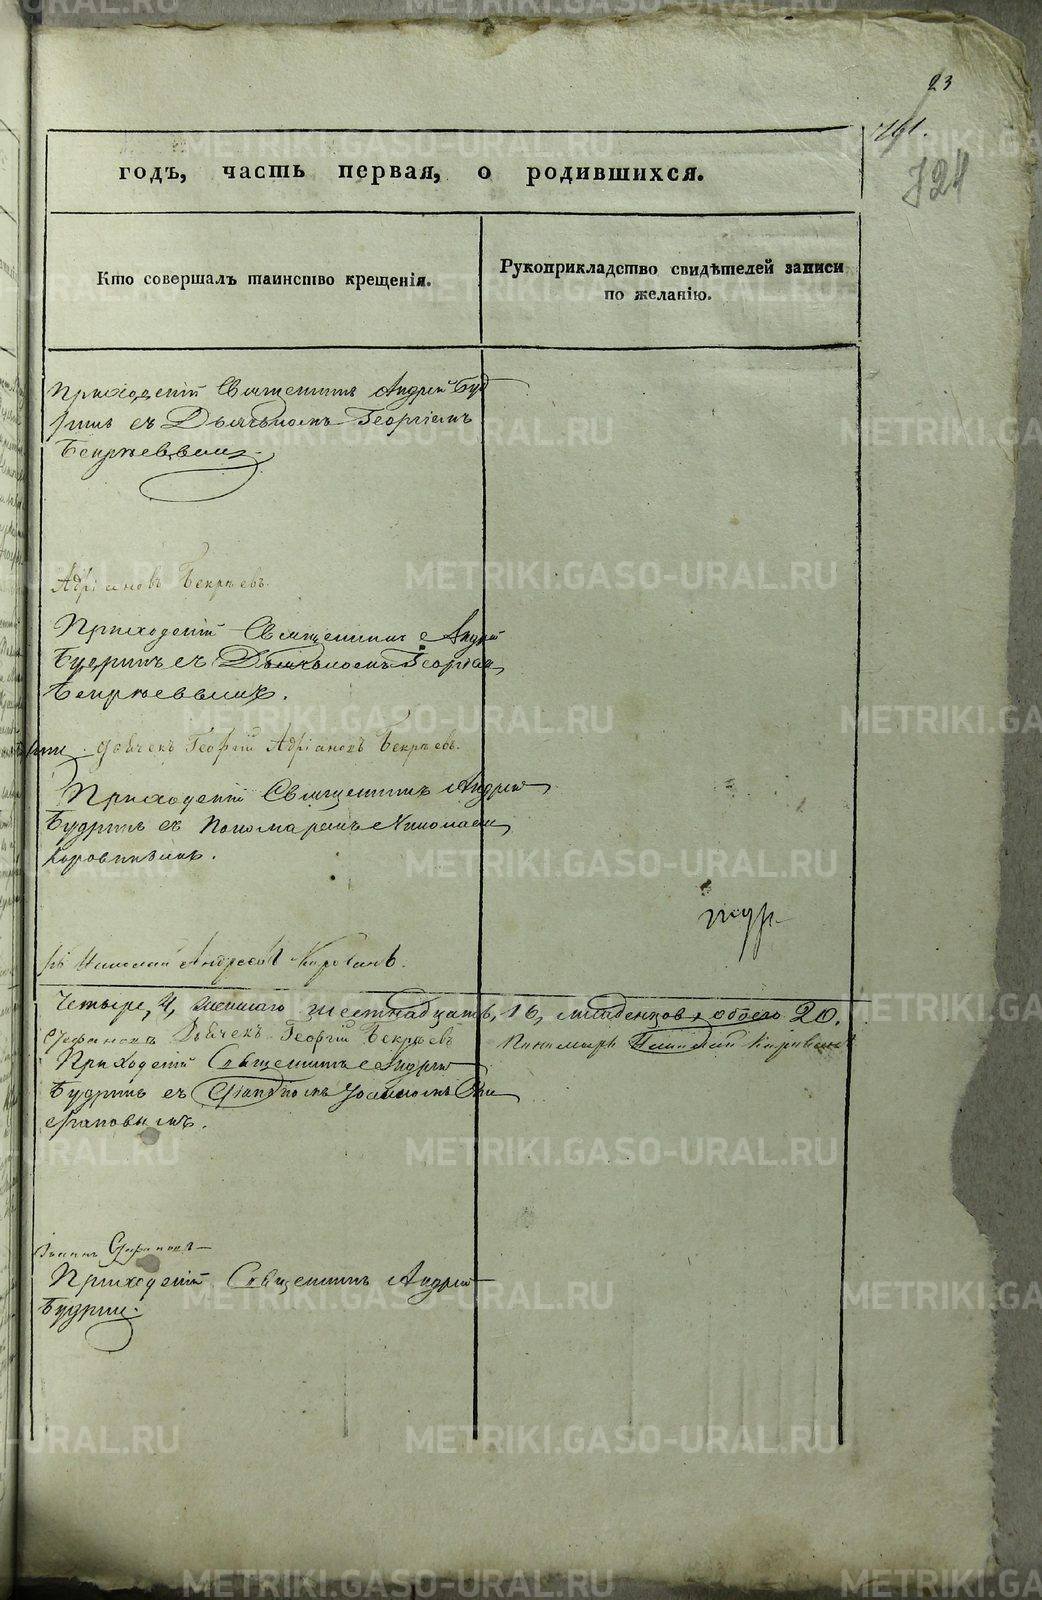 23
791.
724
годъ, часть первая, о родившихся.
Кто совершалъ таинство крещенія.
Рукоприкладство свидѣтелей записи
по желанію.
Приходскій Священникъ Андрей Буд
ринъ съ Дьячкомъ Георгіемъ
Бекряевымъ.
Адріановъ Бекряевъ.
Приходскій Священникъ Андрей
Будринъ съ Дьячкомъ Георгіемъ
Бекряевымъ.
дьячекъ Георгій Адріановъ Бекряевъ.
Приходскій Священникъ Андрей
Будринъ съ Пономаремъ Николаем
Коровинымъ.
Николай Андреевъ Коровинъ.
Четыре, 4, женскаго шестнадцать, 16, младенцовъ обоего 20.
Дьячекъ Георгій Бекряевъ
Пономарь Николай Коровинъ
Приходскій Священникъ Андрей
Будринъ съ
Приходскій Священникъ Андрей
Будринъ.
METRIKI.GASO-URAL.RU